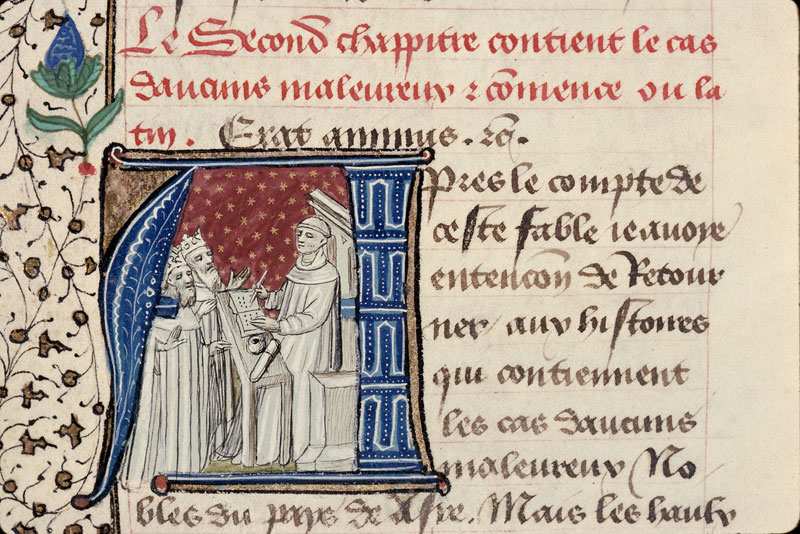 Le Second chappitre contient le cas
daucuns maleureux ⁊ cõmence ou la
tin. Erat animus. ⁊c̃.
Apres le compte de
ceste fable ie auoye
entencõn de Retour
ner aux histoires
qui contiennent
les cas daucuns
maleureux No
bles du pays de Asye. Mais les haulx